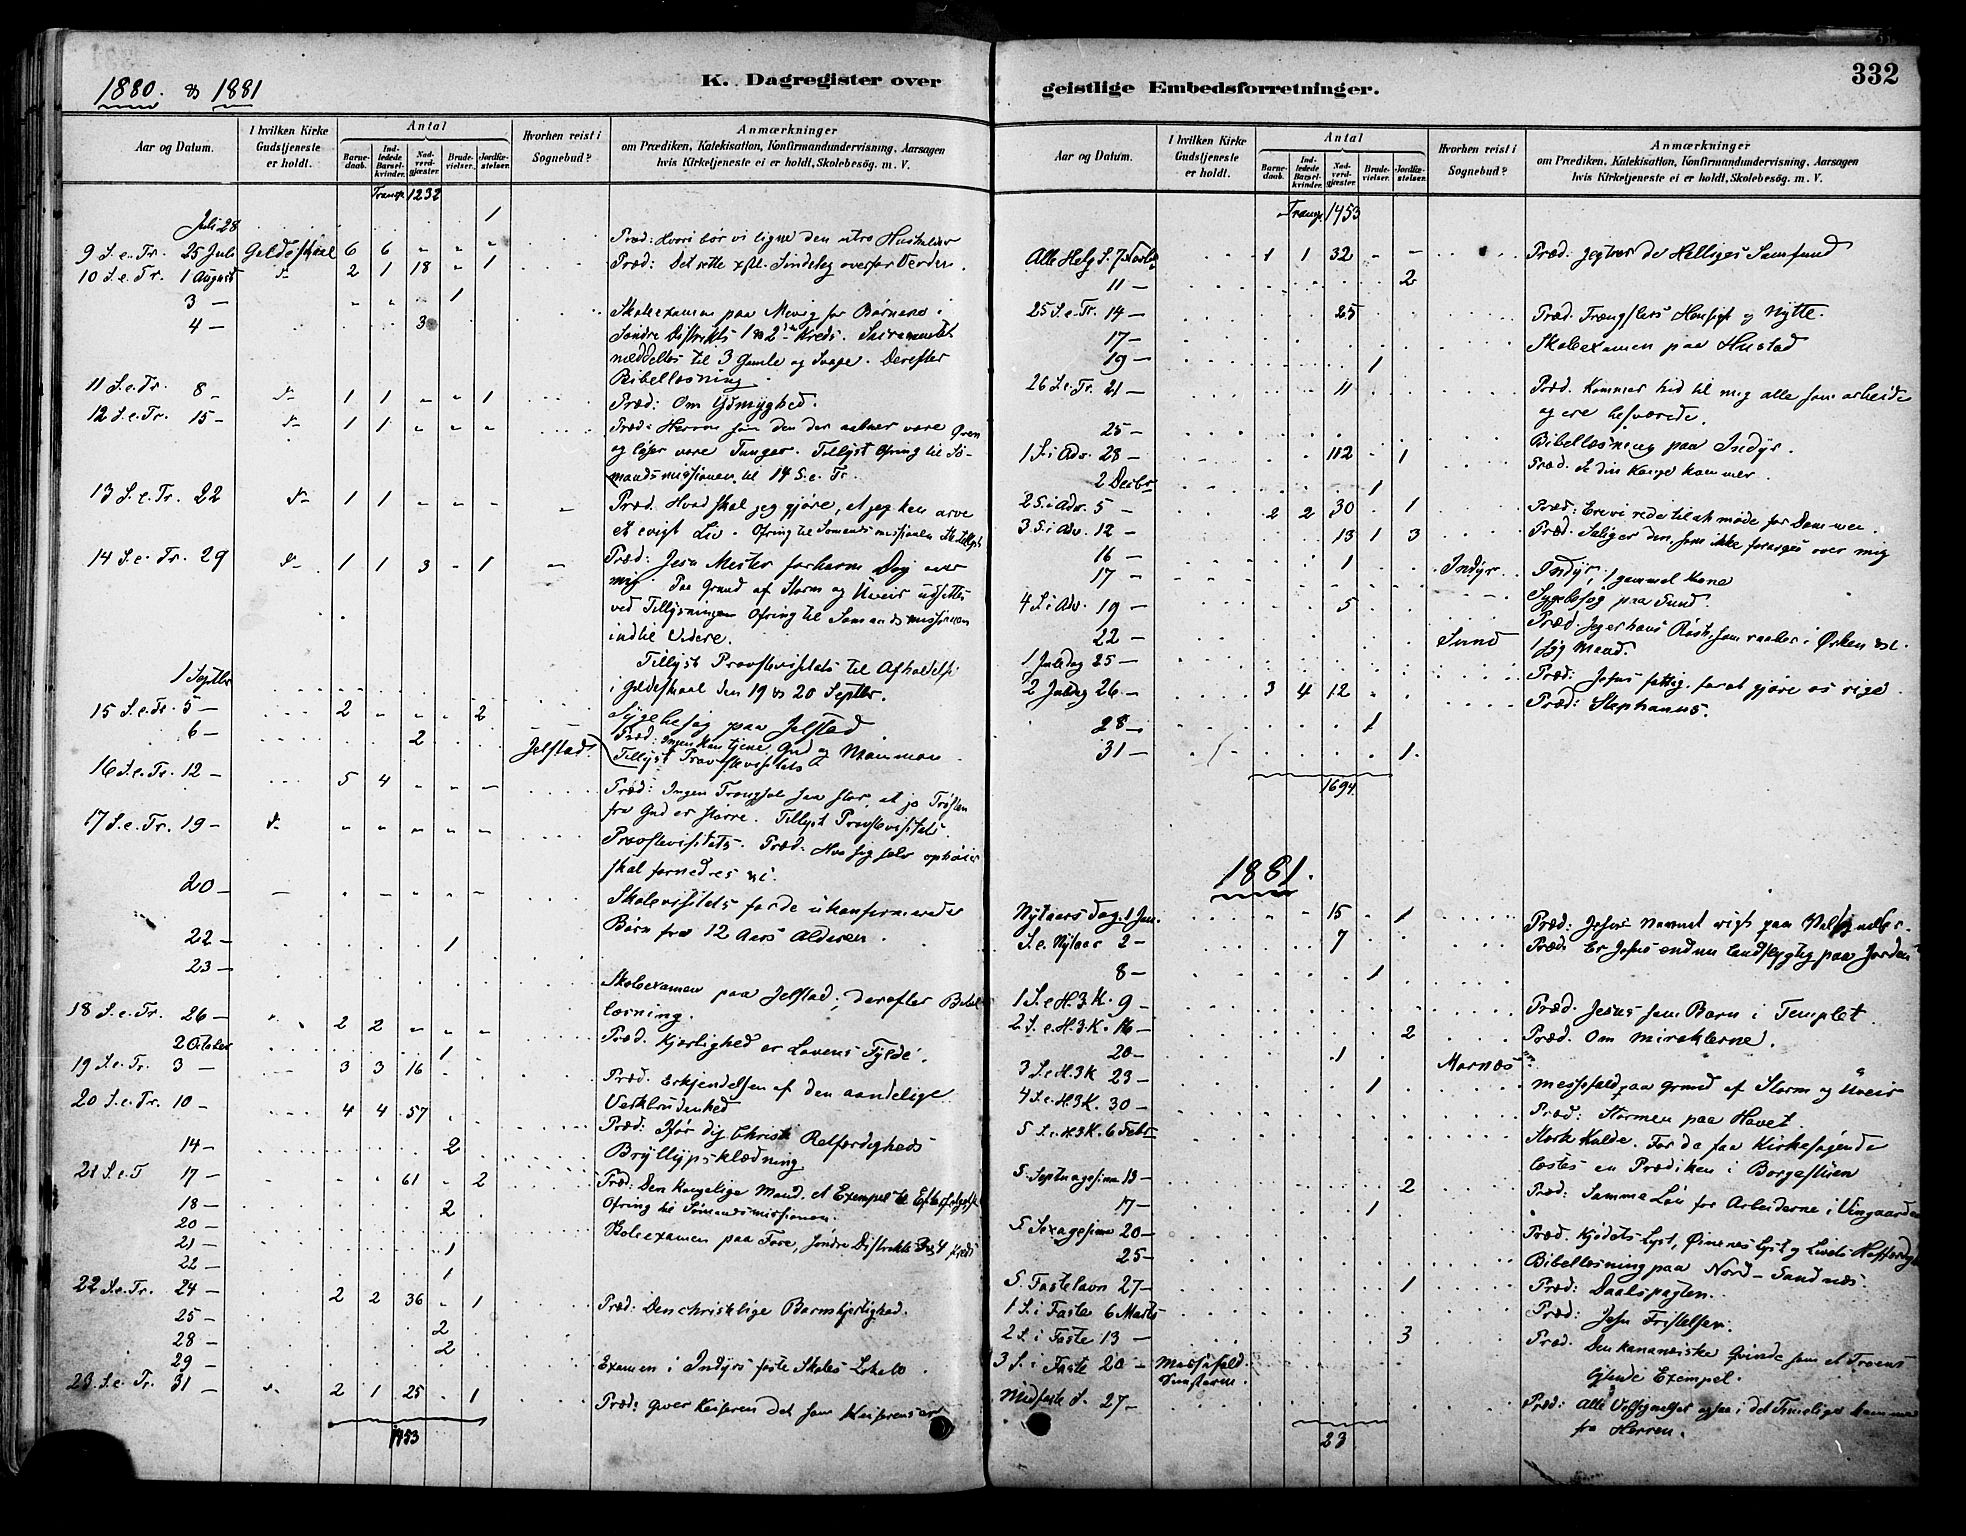 1880. & 1881
K. Dagregister over
Aar og Datum.
I hvilken Kirke Gudstjeneste er holdt.
Antal
Barnedaab.
Indledede Barselkvinder.
Nadverdgjæster.
Brudevielser.
Jordfæstelser.
Hvorhen reist i Sognebud?
Anmærkninger
om Prædiken, Katekisation, Konfirmandundervisning, Aarsagen
hvis Kirketjeneste ei er holdt, Skolebesøg. m. V.
Transp. 1232
Juli 28 1
9 S. e. Tr. 25 Juli Gildeskaal 6 6 " " " Præd: Hvori bør vi ligne den utro Husholder
10 S. e. Tr. 1 August 2 1 18 " 1 Præd: Det rette Sindelag overfor Verden.
3 — " " " 1
4 — 3 Skoleexamen paa Mevig for Børnene i
Søndre Distrikts 1 & 2den Kreds. Sacramentet
meddeltes til 3 Gamle og Svage. Derefter
Bibellæsning.
11 S. e. Tr. 8 — 1 1 " " 1 Præd: Om Ydmyghed.
12 S. e. Tr. 15 — 1 1 " " " Præd: Herren som den der aabner vore Øren
og løser vore Tunger. Tillyst Ofring til Sø-
mandsmissionen til 14 S. e. Tr.
13 S. e. Tr. 22 1 1 " " " Præd. Hvad skal jeg gjøre, at jeg kan arve
et evigt Liv. Ofring til Sømandsmissionen
14 S. e. Tr. 29 1 1 3 " 1 Præd: Jesu Mester forbarm Dig over
mig. Paa Grund af Storm og Uveir udsættes
ved Tillysningen Ofring til Sømandsmissionen
indtil Videre.
1 Septbr Tillyst Provstevisitats til Afholdelse
i Gildeskaal den 19 & 20 Septbr.
15 S. e. Tr. 5 — 2 " " " 2 Sygebesøg paa Jelstad
6 — 2 Jelstad. Præd: Ingen kan tjene Gud og Mammon.
Tillyst Provstevisitats
16 S. e. Tr. 12 — 5 4 " " " Præd: Ingen Trængsel saa stor, at jo Trøsten
fra Gud er større. Tillyst Provstevisitats.
17 S. e. Tr. 19 — " " " " " Provstevisitats. Præd: Hvo sig selv ophøier
skal fornedres
20 — Skolevisitats for de ukonfirmerede
Børn fra 12 Aars Alderen.
22 — 1
23 — Skoleexamen paa Jelstad; derefter Bibel-
læsning.
18 S. e. Tr. 26 — 2 2 " " " Præd. Kjærlighed er Lovens Fylde.
2 October 1
19 S. e. Tr. 3 — 3 3 16 Præd. Erkjendelsen af den aandelige
20 S. e. Tr. 10 — 4 4 57 Præd: Ifør dig Christi Retfærdigheds
14 — 2 Bryllupsklædning
21 S. e. T 17 — 61 " 2 Præd: Den kongelige Mand et Exempel til
18 — 2 Ofring til Sømandsmissionen.
20 — Skoleexamen paa Fore, søndre Distrikts 3 & 4 Kreds
21 — 1
22 — 1
22 S. e. Tr. 24 — 2 2 36 " 1 Præd: Den christelige Barmhjertighed.
25 — 2
28 — 2
29 — Examen i Indyrs faste Skoles Lokale.
23. S. e. Tr. 31 — 2 1 25 1 Præd: Giver Keiseren det som Keiserens er
1453
geistlige Embedsforretninger.
332
Aar og Datum.
I hvilken Kirke Gudstjeneste er holdt.
Antal
Barnedaab.
Indledede Barselkvinder.
Nadverdgjæster.
Brudevielser.
Jordfæstelser.
Hvorhen reist i Sognebud?
Anmærkninger
om Prædiken, Katekisation, Konfirmandundervisning, Aarsagen
hvis Kirketjeneste ei er holdt, Skolebesøg. m. V.
Transp 1453
Alle Helg S. 7 Novbr 1 1 32 " — Præd: Jeg troer de Helliges Samfund
11 — 2
25 S. e. Tr. 14 — 25 Præd. Trængslers Hensigt og Nytte.
17 — Skoleexamen paa Hustad
19 — 1
26 S. e. Tr. 21 — 11 Præd. Kommer hid til mig alle som arbeide
og ere besværede.
25 — Bibellæsning paa Indyr.
1 S. i Adv. 28 — 112 1 Præd. Se din Konge kommer.
2 Decbr 1
2 S. i Adv. 5 — 2 2 30 1 Præd: Ere vi rede til at møde for Dommen.
3. S. i Adv. 12 — 13 1 3 Præd: Salig er den, som ikke forarges over mig
16 — 1 Indyr Indyr, 1 gammel Kone
17 — Sygebesøg paa Sund.
4 S. i Adv. 19 — 5 Præd. Jeg er hans Røst, som raaber i Ørken
22 — Sund 1 syg Mand.
1 Juledag 25 — Præd: Jesus fattig for at gjøre os rige
2 Juledag 26 — 3 4 12 Præd: Stephanus.
28 — 1
31 — 1.
1694
1881.
Nytaarsdag 1 Jan. 15 1 Præd: Jesus Navnet rigt paa Velsignelse.
S. e. Nytaar 2 — 7 Præd: Er Jesus endnu landflygtig paa Jorden
8 — 1
1 S. e H. 3 K. 9 — Præd. Jesus som Barn i Templet
2. S. e H. 3 K. 16 — 2 Præd. Om Miraklerne.
20 — 1 Marnæs
3 S. e H. 3 K 23 — 1 Messefald paa Grund af Storm og Uveir
4 S. e. H. 3 K. 30 — Præd: Stormen paa Havet.
5 S. e. H. 3 K. 6 Febr Stærk Kulde. For de faa Kirkesøgende
læstes en Prædiken i Borgestuen
S. Septuagesima 13 — 2 Præd: Samme Løn for Arbeiderne i Vingaarden
17 — 1
S Sexagesima 20 — Præd. Kjødets Lyst, Øinenes Lyst og Livets
25 — Bibellæsning paa Nord-Sandnæs.
S. Fastelavn 27 — 1 Præd: Daabspagten.
1 S. i Faste 6 Marts Præd: Jesu Fristelser.
2 S. i Faste 13 — 3 Præd. Den kananæiske Qvinde som et Troens
3 S. i Faste 20 — Messefald. Exempel.
Midfaste S. 27 — Præd: Alle Velsignelser ogsaa i det Timelige komme
fra Herren.
23